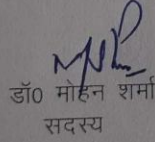 डॉ0 मोहन शर्मा
सदस्य